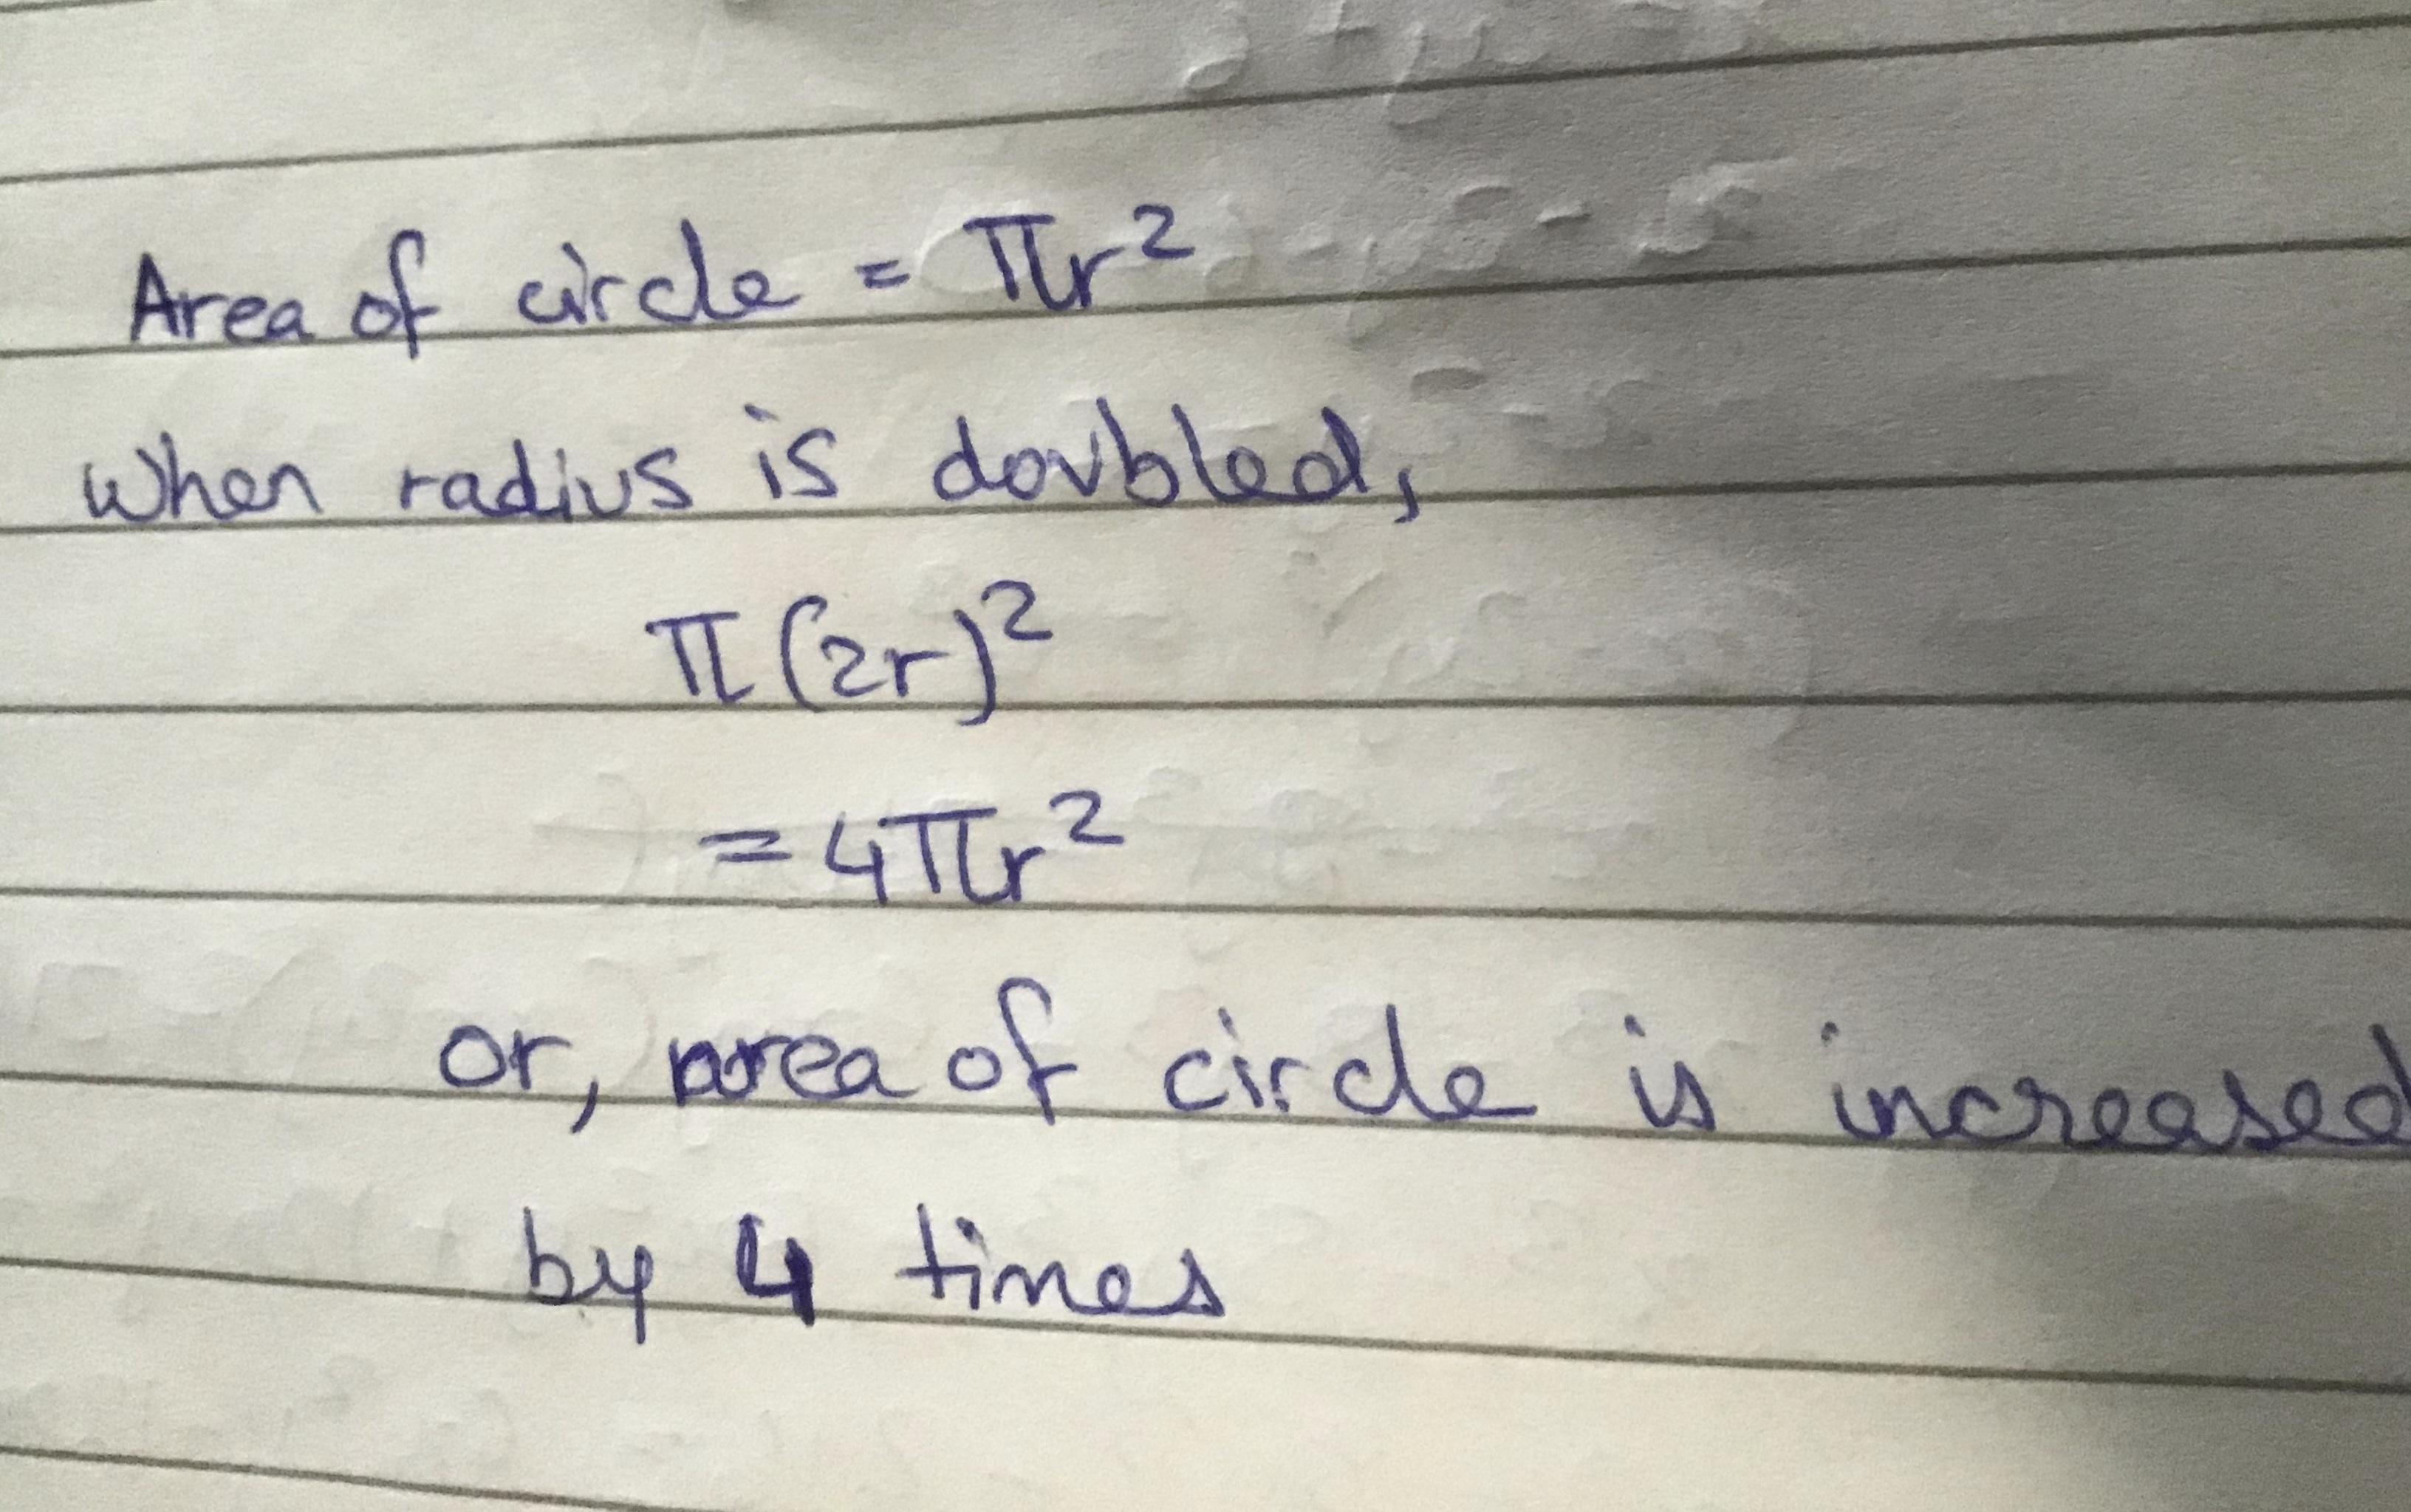 Area of circle = πr²
When radius is doubled,
π(2r)²
= 4πr²
or, area of circle is increased
by 4 times